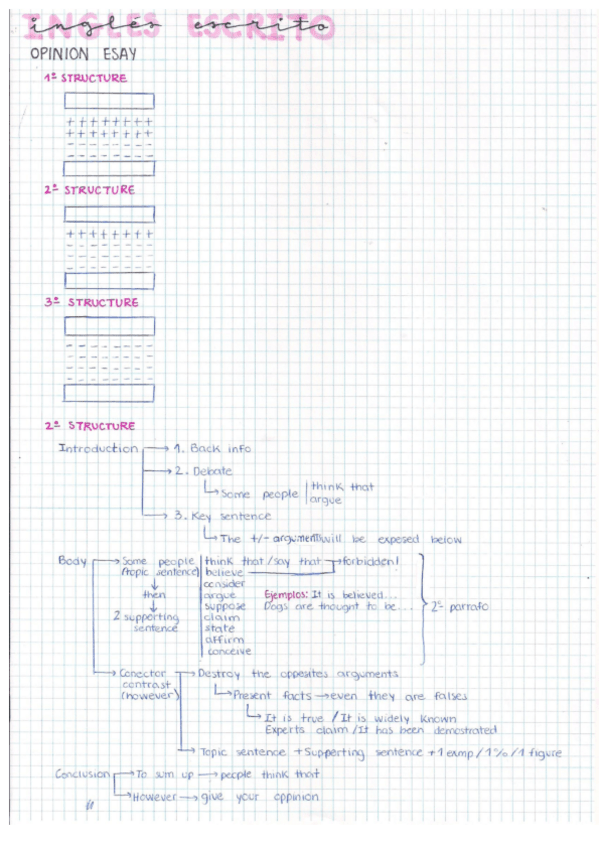 inglés escrito
INGLÉS ESCRITO
OPINION ESAY
1ª STRUCTURE
+ + + + + + + +
+ + + + + + + +
- - - - - - -
- - - - - - -
2ª STRUCTURE
+ + + + + + + +
- - - - - - -
- - - - - - -
- - - - - - -
3ª STRUCTURE
- - - - - - -
- - - - - - -
- - - - - - -
- - - - - - -
2ª STRUCTURE
Introduction → 1. Back info
→ 2. Debate
↳ Some people | think that
argue
→ 3. Key sentence
↳ The +/- arguments will be exposed below
Body → Some people | think that / say that → forbidden!
(topic sentence) believe
↓ consider
then argue Ejemplos: It is believed...
↓ suppose Dogs are thought to be... 2º parrafo
2 supporting claim
sentence state
affirm
conceive
→ Conector → Destroy the opposites arguments
contrast
(however) ↳ Present facts → even they are falses
↳ It is true / It is widely known
Experts claim / It has been demostrated
→ Topic sentence + Supporting sentence + 1 exmp / 1% / 1 figure
Conclusion → To sum up → people think that
↳ However → give your oppinion